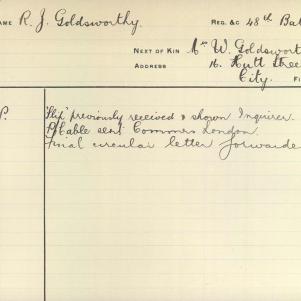 NAME R. J. Goldsworthy. REG. &C 48th Bat
NEXT OF KIN Mr W. Goldswort
ADDRESS 16. Hutt Stree
City. FI
P. "Slip" previously received & shown Inquirer.
P/Cable sent Commrs London.
Final circular letter forwarde